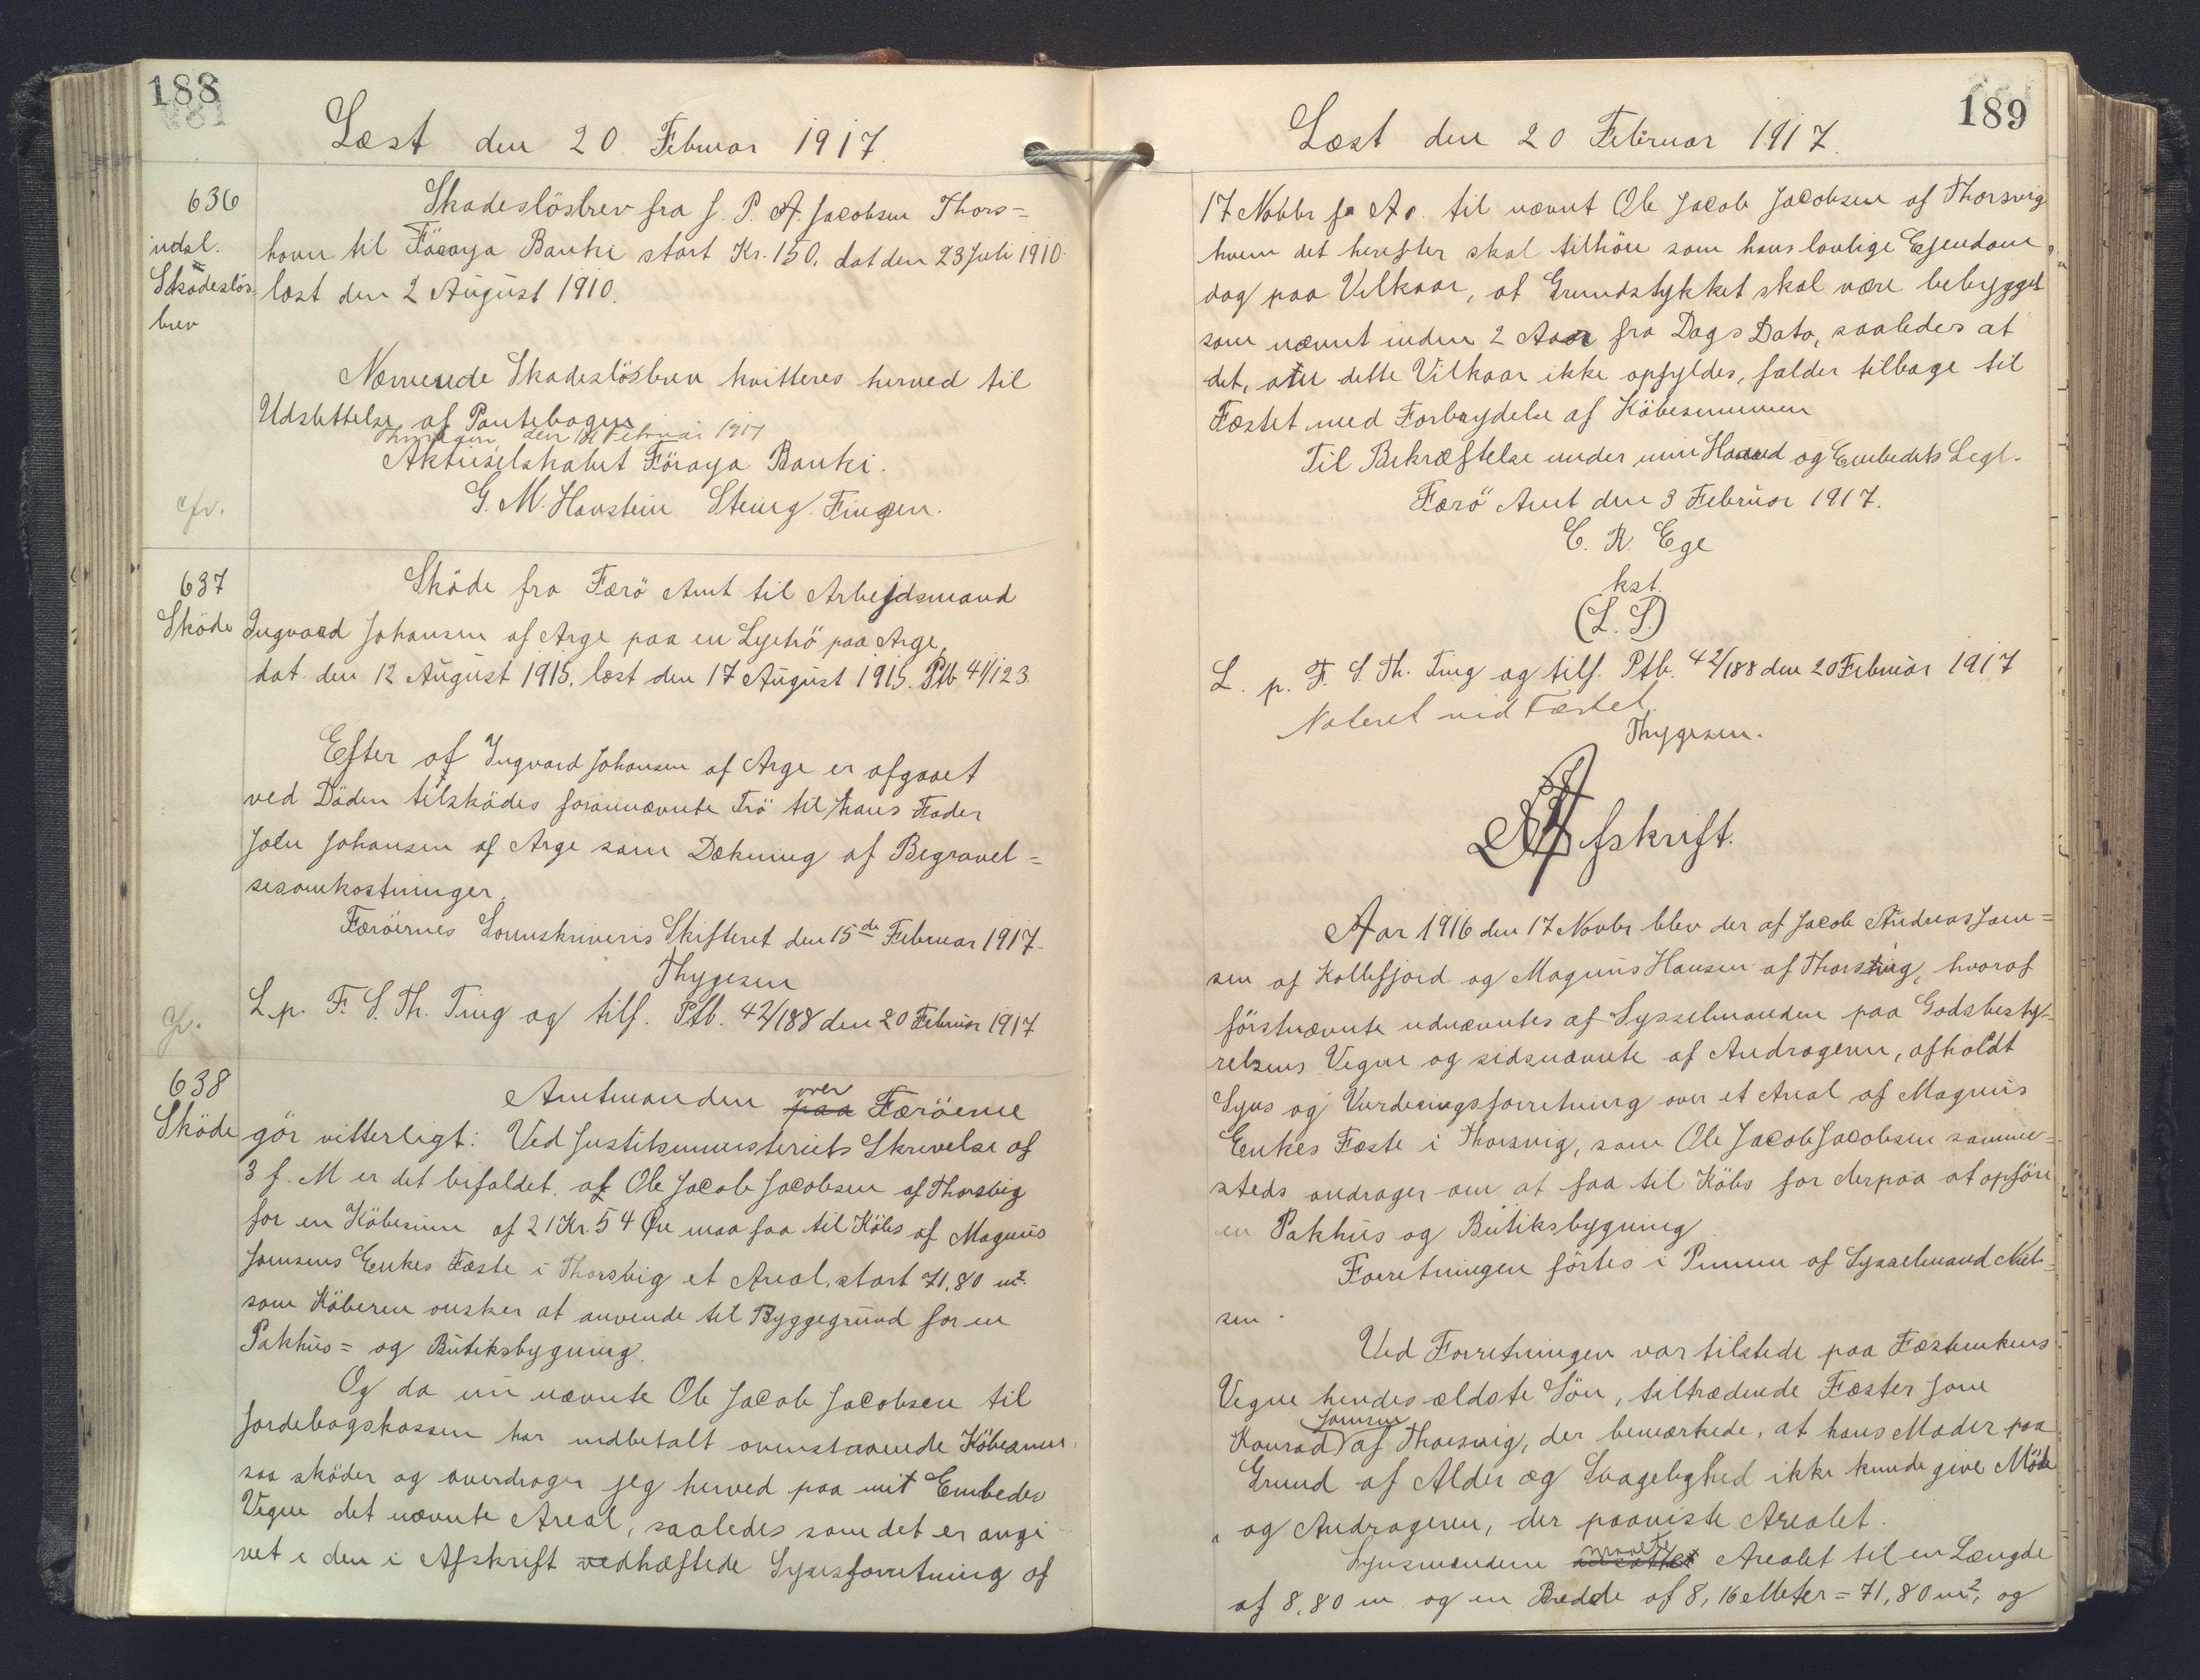 188
Læst den 20 Februar 1917.
636
udsl.
Skadeslös-
brev
Skadeslösbrev fra J. P. A. Jacobsen Thors=
havn til Föroya Banki stort Kr. 150, dat den 23 Juli 1910.
læst den 2 August 1910.
Nærværende Skadeslösbrev kvitteres herved til
Udslettelse af Pantebogen
Thorshavn, den Februar 1917
Aktieselskabet Föroya Banki.
G. M. Hanstein Steing. Finsen.
637
Sköde
Sköde fra Færö Amt til Arbejdsmand
Ingvard Johansen af Arge paa en Lyetrö paa Arge,
dat. den 12 August 1915. læst den 17 August 1915. Ptb 41/123.
Efter af Ingvard Johansen af Arge er afgaaet
ved Döden tilsködes forannævnte Trö til hans Fader
John Johansen af Arge som Dækning af Begravel=
sesomkostninger.
Færöernes Sorenskriveris Skifteret den 15de Februar 1917.
Thygesen
L. p. F. S. Th. Ting og tilf. Ptb. 42/188 den 20 Februar 1917
638
Sköde
Amtmanden paa over Færöerne
gör vitterligt: Ved Justitsministeriets Skrivelse af
3 f. M er det bifaldet, af Ole Jacob Jacobsen af Thorsvig
for en Köbesum af 21 Kr. 54 Øre maa faa til Köbs af Magnus
Joensens Enkes Fæste i Thorsvig et Areal, stort 71,80 m².
som Köberen ønsker at anvende til Byggegrund for en
Pakhus= og Butiksbygning.
Og da nu nævnte Ole Jacob Jacobsen til
Jordebogskassen har indbetalt ovenstaaende Köbesum,
saa sköder og overdrager jeg herved paa mit Embedes
Vegne det nævnte Areal, saaledes som det er angi
vet i den i Afskrift vedhæftede Synsforretning af
189
Læst den 20 Februar 1917.
17 Novbr f. A. til nævnt Ole Jacob Jacobsen af Thorsvig
hvem det herefter skal tilhöre som hans lovlige Ejendom,
dog paa Vilkaar, at Grundstykket skal være bebygget
som nævnt inden 2 Aar fra Dags Dato, saaledes at
det, om dette Vilkaar ikke opfyldes, falder tilbage til
Fæstet med Forbrydelse af Köbesummen
Til Bekræftelse under min Haand og Embedets Segl.
Færö Amt den 3 Februar 1917.
C. R. Ege
kst.
(L. S.)
L. p. F. S. Th. Ting og tilf. Ptb. 42/188 den 20 Februar 1917
Noteret ved Fæstet.
Thygesen.
Afskrift.
Aar 1916 den 17 Novbr blev der af Jacob Andreas Joen=
sen af Kollefjord og Magnus Hansen af Thorsvig, hvoraf
förstnævnte udnævntes af Sysselmanden paa Godsbesty-
relsens Vegne og sidsnævnte af Andrageren, afholdt
Syns og Vurderingsforretning over et Areal af Magnus
Enkes Fæste i Thorsvig, som Ole Jacob Jacobsen samme=
steds andrager om at faa til Köbs for derpaa at opföre
en Pakhus og Butiksbygning
Forretningen förtes i Pennen af Sysselmand Niel=
sen.
Ved Forretningen var tilstede paa Fæsteenkens
Vegne hendes ældste Sön, tiltrædende Fæster Jone
Konrad Joensen af Thorsvig, der bemærkede, at hans Moder paa
Grund af Alder og Svagelighed ikke kunde give Möde
og Andrageren, der paaviste Arealet.
Synsmændene maalte Arealet til en Længde
af 8,80 m og en Bredde af 8,16 Meter = 71,80 m², og